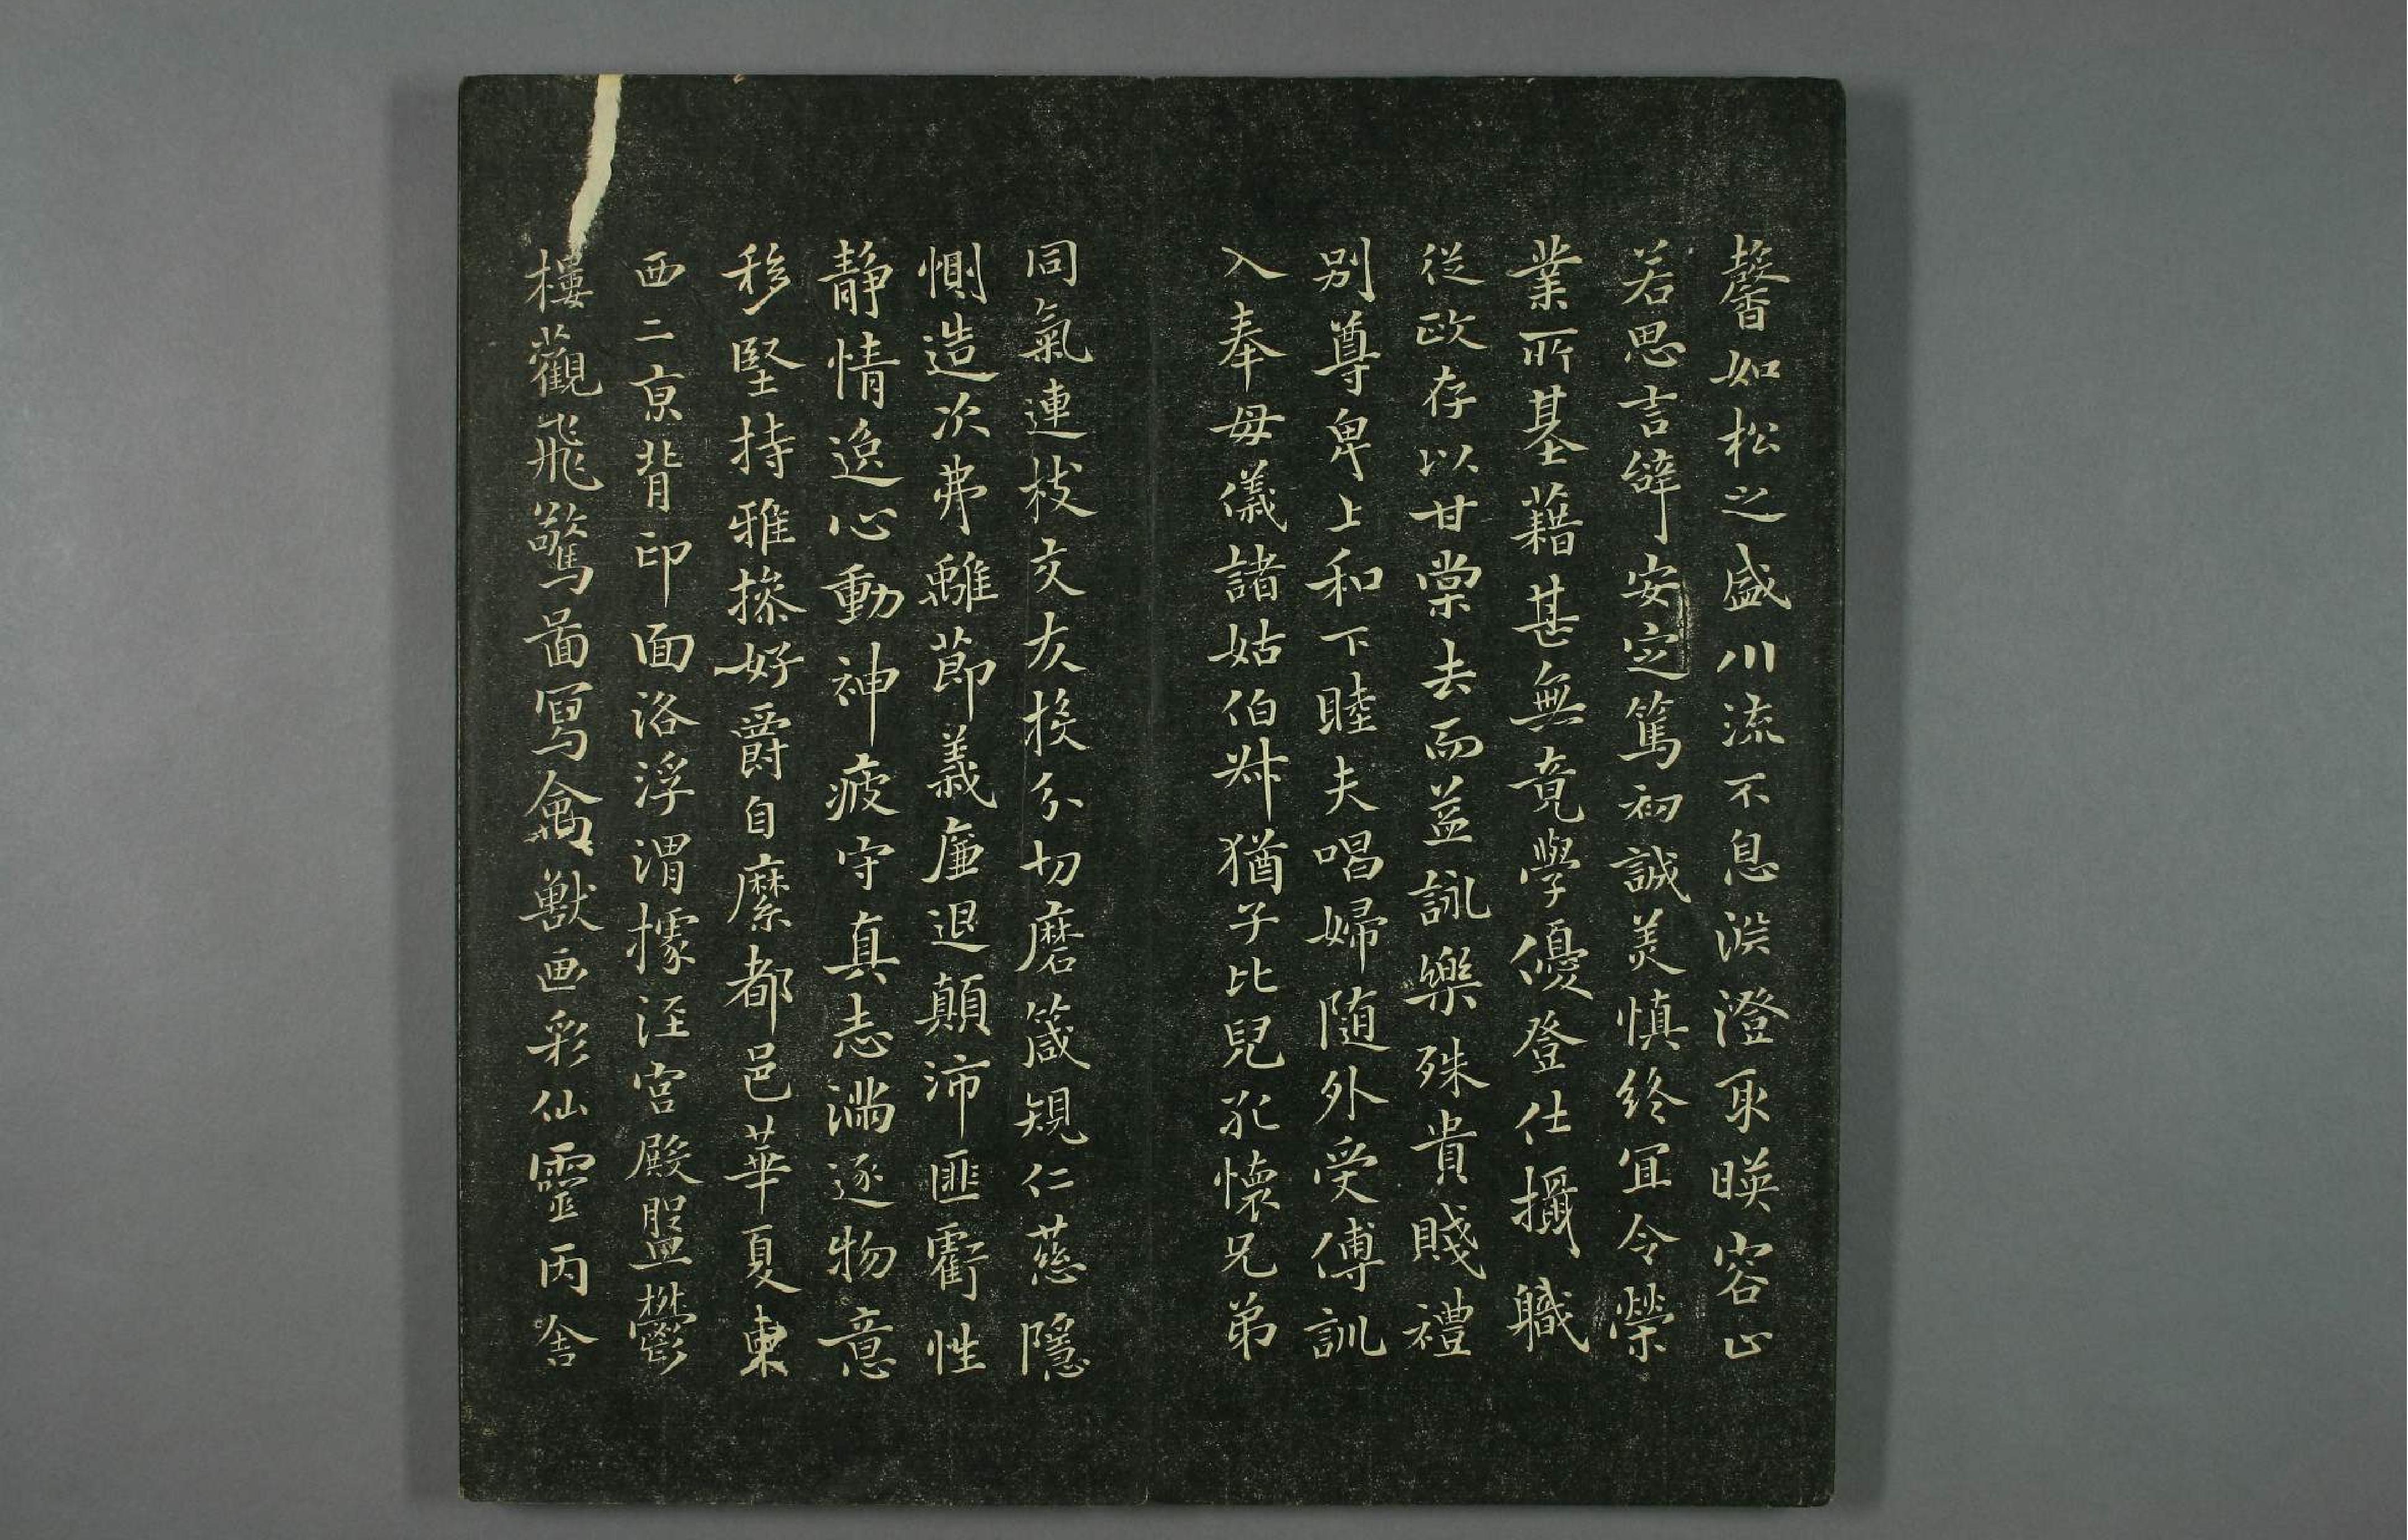 馨如松之盛川流不息淵澄取暎容止
若思言辭安定篤初誠美慎終宜令榮
業所基藉甚無竟學優登仕攝職
從政存以甘棠去而益詠樂殊貴賤禮
别尊卑上和下睦夫唱婦随外受傅訓
入奉母儀諸姑伯叔猶子比兒孔懷兄弟
同氣連枝交友投分切磨箴規仁慈隱
惻造次弗離節義廉退顛沛匪虧性
静情逸心動神疲守真志滿逐物意
移堅持雅操好爵自縻都邑華夏東
西二京背邙面洛浮渭據涇宫殿盤鬱
樓觀飛驚畐寫禽獸画彩仙靈丙舍